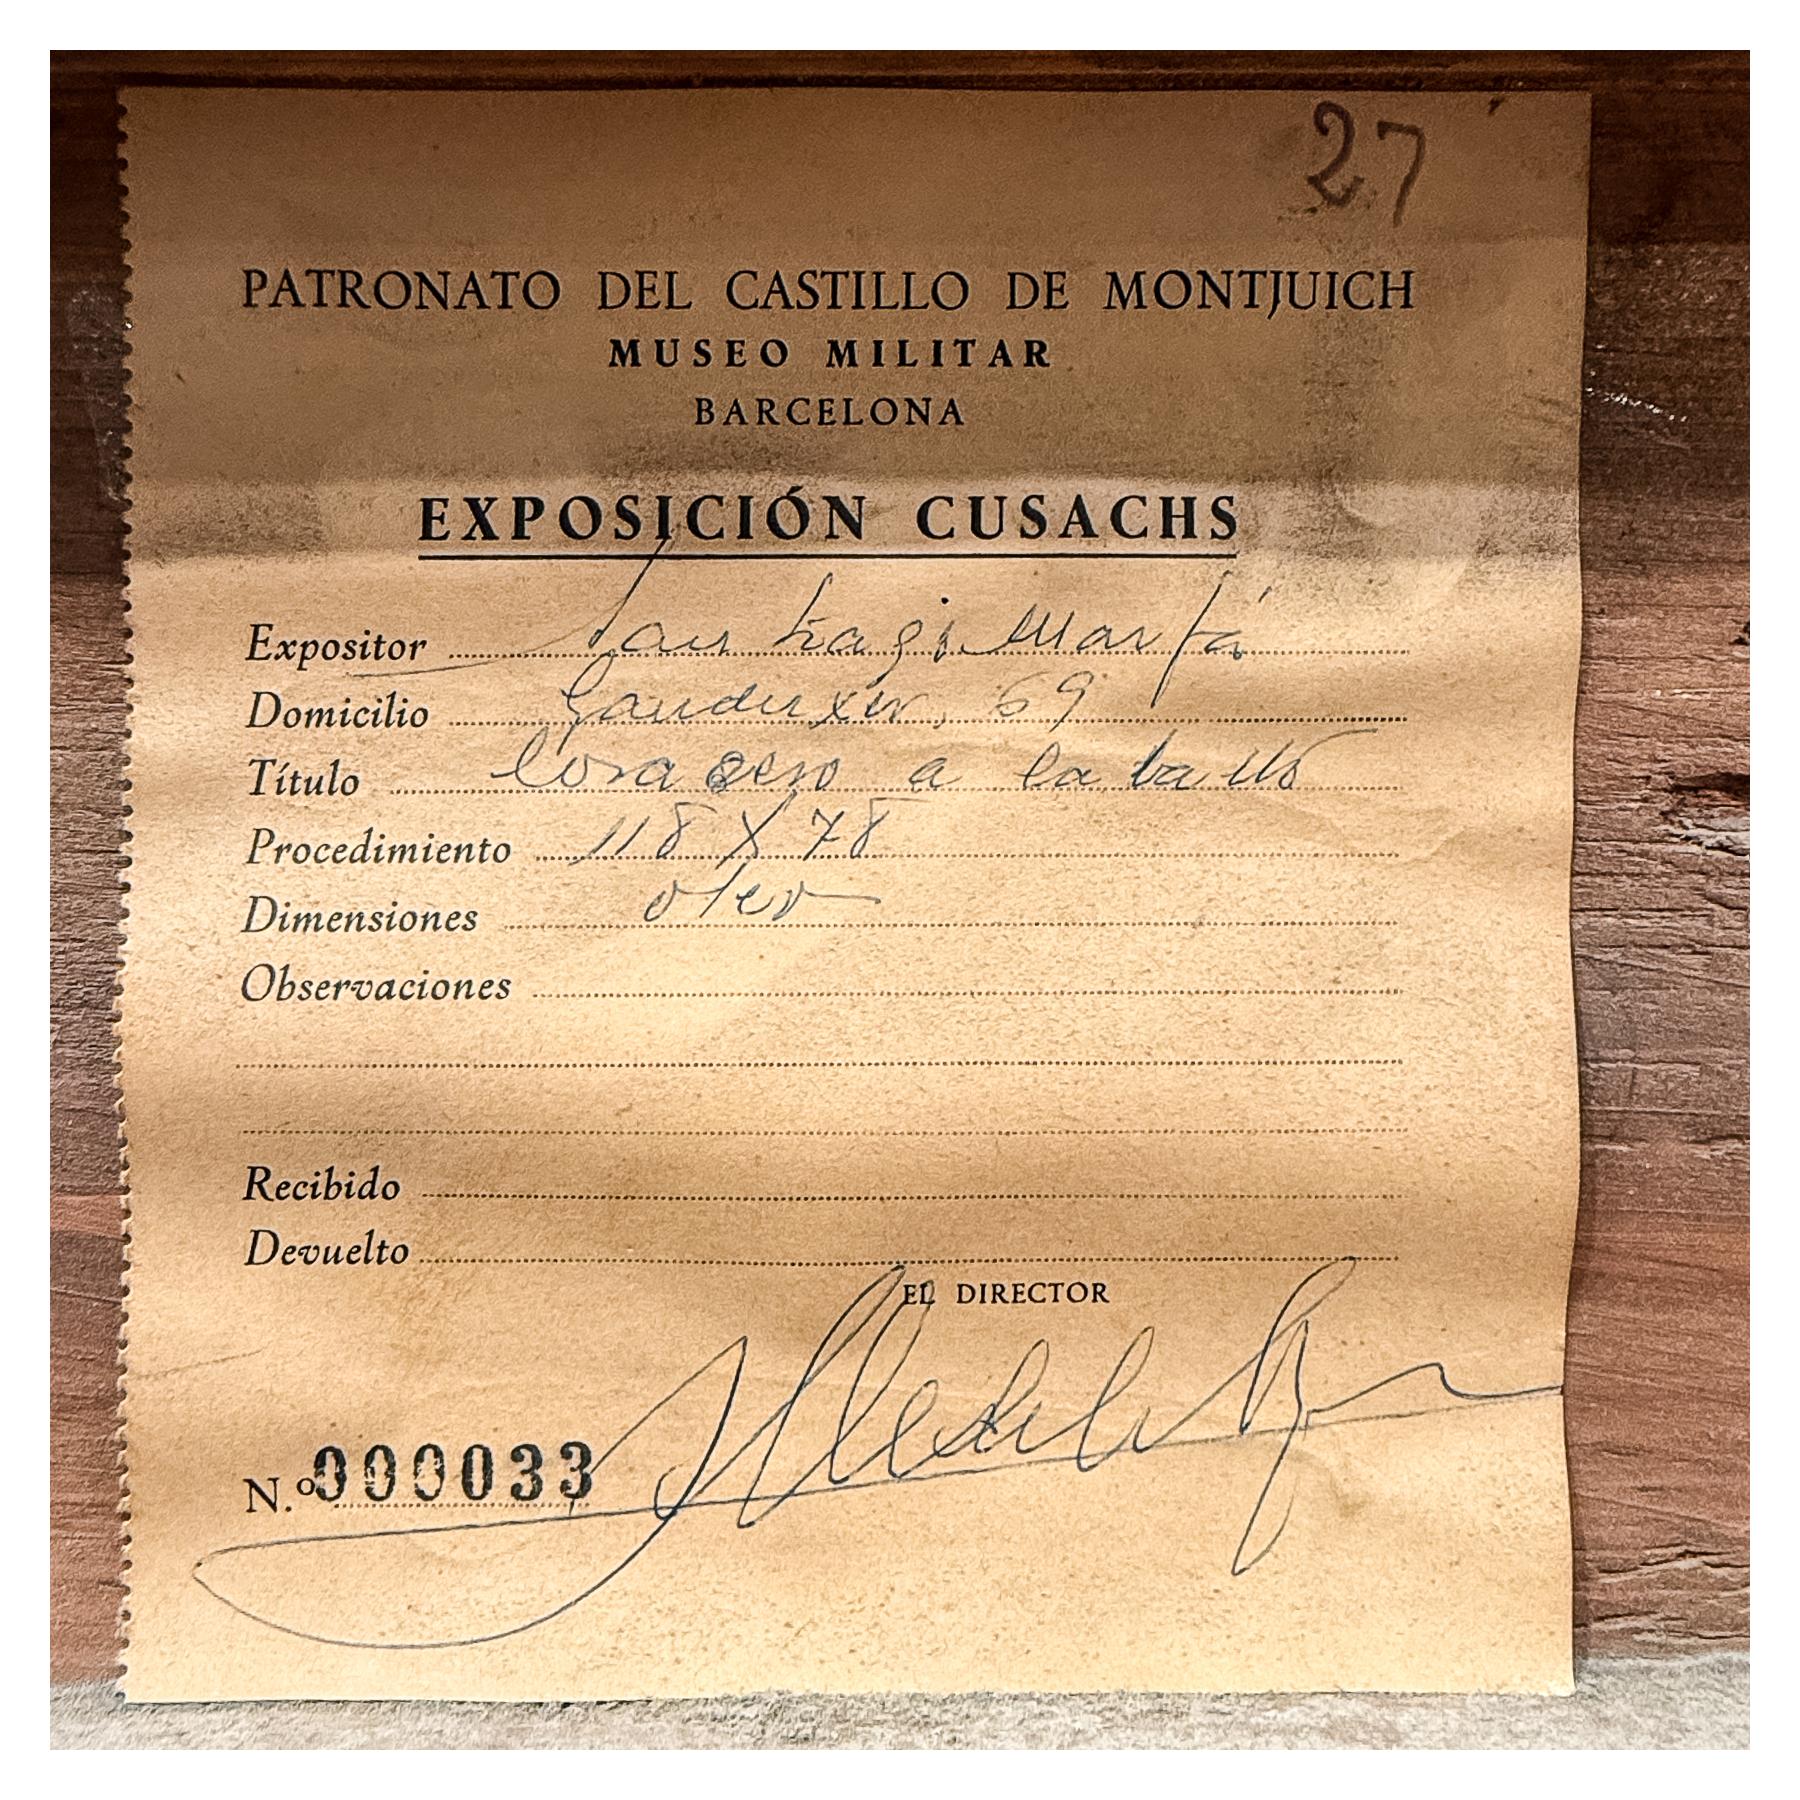 27
PATRONATO DEL CASTILLO DE MONTJUICH
MUSEO MILITAR
BARCELONA
EXPOSICIÓN CUSACHS
Expositor Santiagi Martá
Domicilio Ganduxer, 69
Título Coracero a caballo
Procedimiento 118 X 78
Dimensiones oleo
Observaciones
Recibido
Devuelto
EL DIRECTOR
N.º 000033